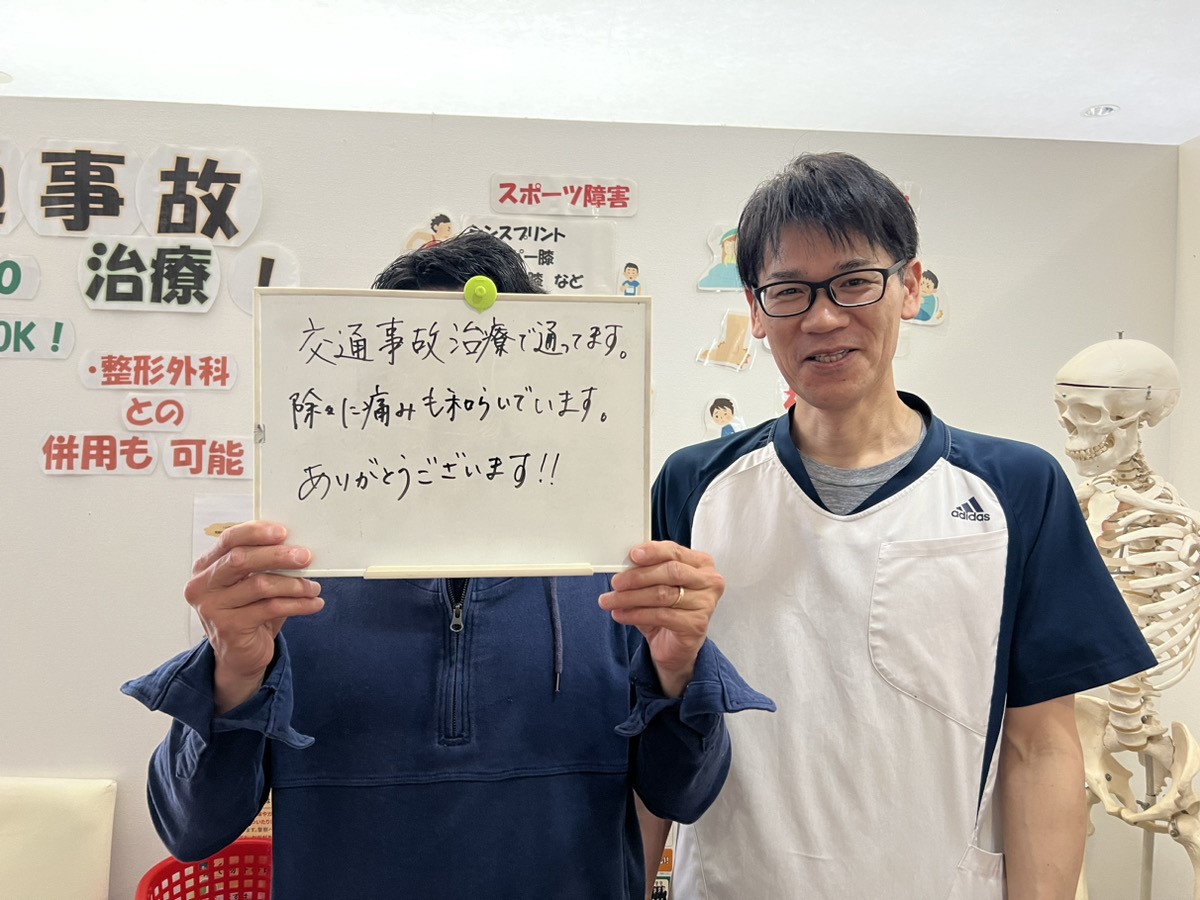 事故
治療！
OK！
・整形外科
との
併用も 可能
スポーツ障害
シンスプリント
ー膝
膝 など
交通事故治療で通ってます。
除々に痛みも和らいでいます。
ありがとうございます!!
adidas